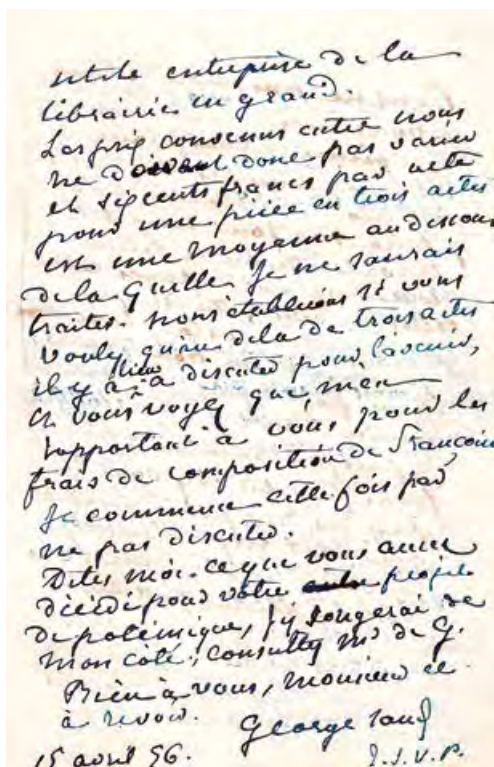 utile entreprise de la
librairie en grand.
Les prix convenus entre nous
ne doivent donc pas varier
et six cents francs par acte
pour une pièce en trois actes
est une moyenne au dessous
de la quelle je ne saurais
traiter. nous établirons si vous
voulez qu'au delà de trois actes
il y aura lieu à discuter pour l'avenir,
et vous voyez que m'en
rapportant à vous pour les
frais de composition de Françoise
je commence cette fois par
ne pas discuter.
Dites moi ce que vous aurez
décidé pour votre projet
de polémique, j'y songerai de
mon côté, consultez Mr de G.
Bien à vous, monsieur et
à revoir.
George Sand
15 avril 56.
T.S.V.P.